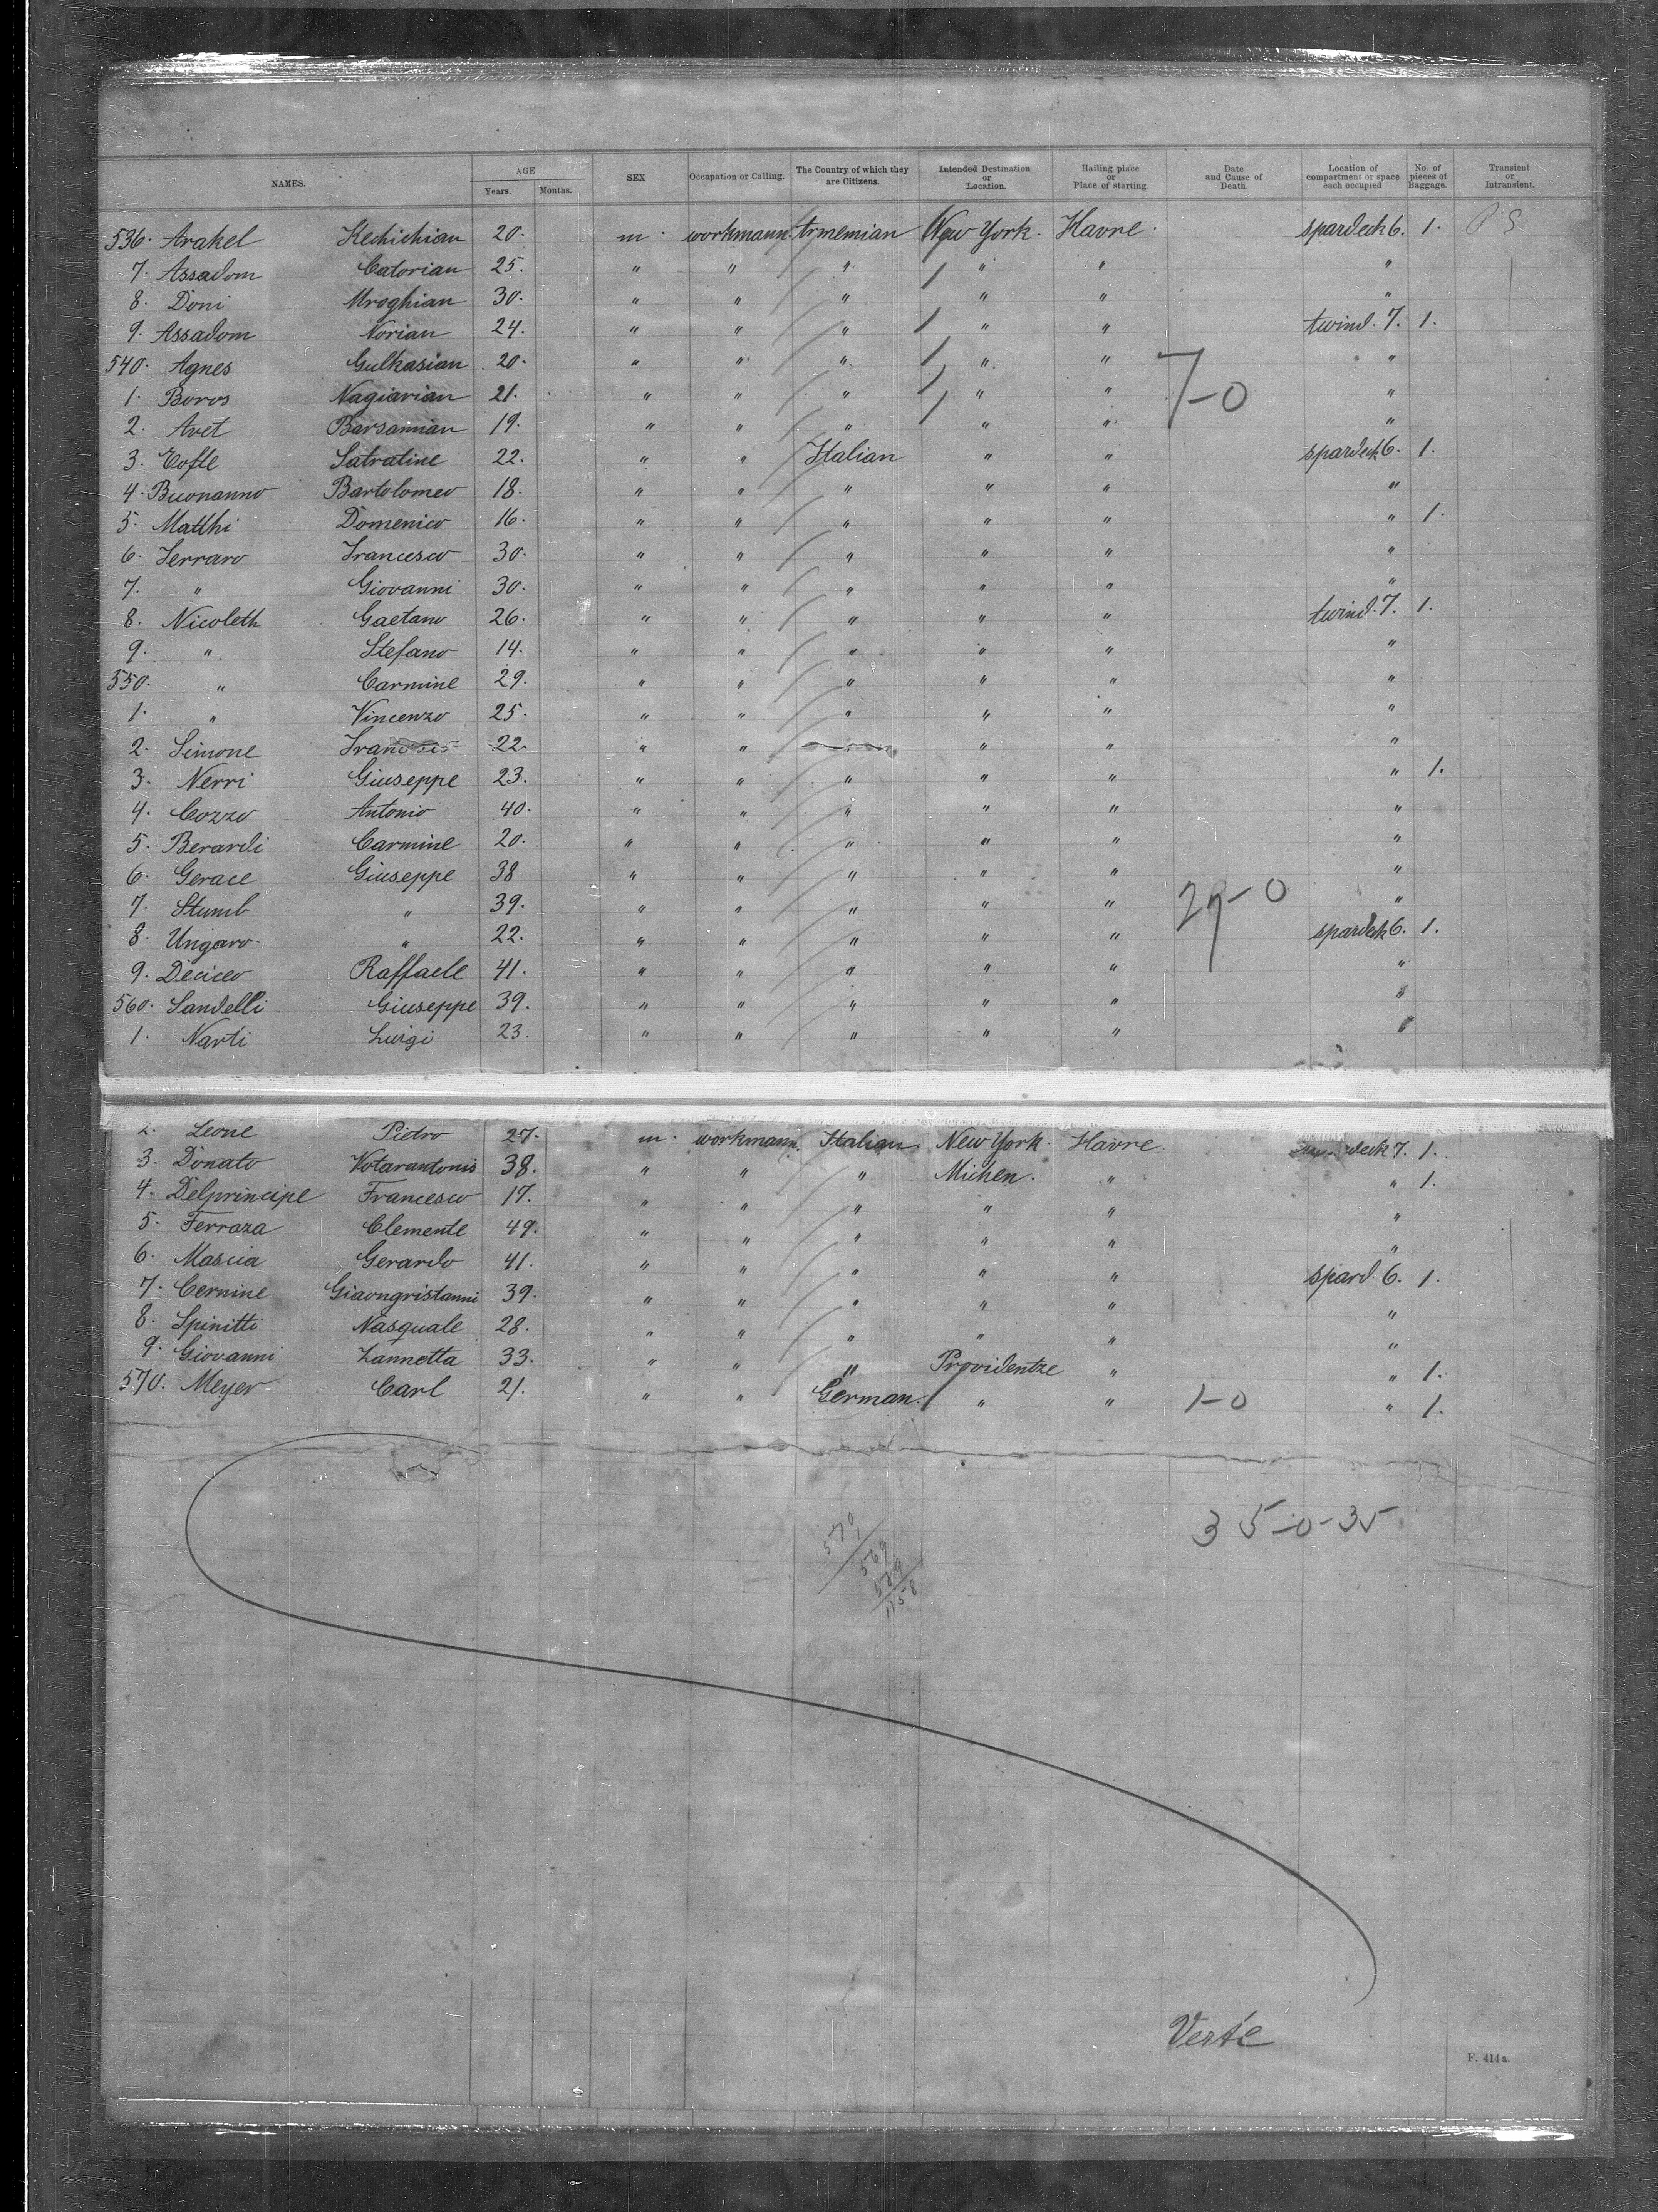 NAMES. AGE Years. Months. SEX Occupation or Calling. The Country of which they are Citizens. Intended Destination or Location. Hailing place or Place of starting. Date and Cause of Death. Location of compartment or space each occupied No. of pieces of Baggage. Transient or Intransient.
536. Arakel Kechichian 20. m. workmann. Armenian New York. Havre. spardeck 6. 1. P S
7. Assadom Catorian 25. " " " " " "
8. Doni Mroghian 30. " " " " " "
9. Assadom Norian 24. " " " " " twind. 7. 1.
540. Agnes Gulkasian 20. " " " " " "
1. Boros Nagiarian 21. " " " " " 7-0 "
2. Avet Barsamian 19. " " " " " "
3. Eofle Satratine 22. " " Italian " " spardeck 6. 1.
4. Buonanno Bartolomeo 18. " " " " " "
5. Matthi Domenico 16. " " " " " " 1.
6. Ferraro Francesco 30. " " " " " "
7. " Giovanni 30. " " " " " "
8. Nicoleth Gaetano 26. " " " " " twind. 7. 1.
9. " Stefano 14. " " " " " "
550. " Carmine 29. " " " " " "
1. " Vincenzo 25. " " " " " "
2. Simone 22. " " " " "
3. Nerri Giuseppe 23. " " " " " " 1.
4. Cozzo Antonio 40. " " " " " "
5. Berardi Carmine 20. " " " " " "
6. Gerace Giuseppe 38 " " " " " "
7. Stumb " 39. " " " " " 27-0 "
8. Ungaro. " 22. " " " " " spardeck 6. 1.
9. Decicco Raffaele 41. " " " " " "
560. Sandelli Giuseppe 39. " " " " " "
1. Narti Luigi 23. " " " " " "
2. Leone Pietro 27. m. workmann. Italian New York. Havre. deck 7. 1.
3. Donato Votarantonis 38. " " " Michen. " " 1.
4. Delprincipe Francesco 17. " " " " " "
5. Ferraza Clemente 49. " " " " " "
6. Mascia Gerardo 41. " " " " " spard. 6. 1.
7. Cernine Giaongristanni 39. " " " " " "
8. Spinitti Nasquale 28. " " " " " "
9. Giovanni Zannetta 33. " " " Providentze " " 1.
570. Meyer Carl 21. " " German. " " 1-0 " 1.
35-0-35
570
569
589
1158
F. 414 a.